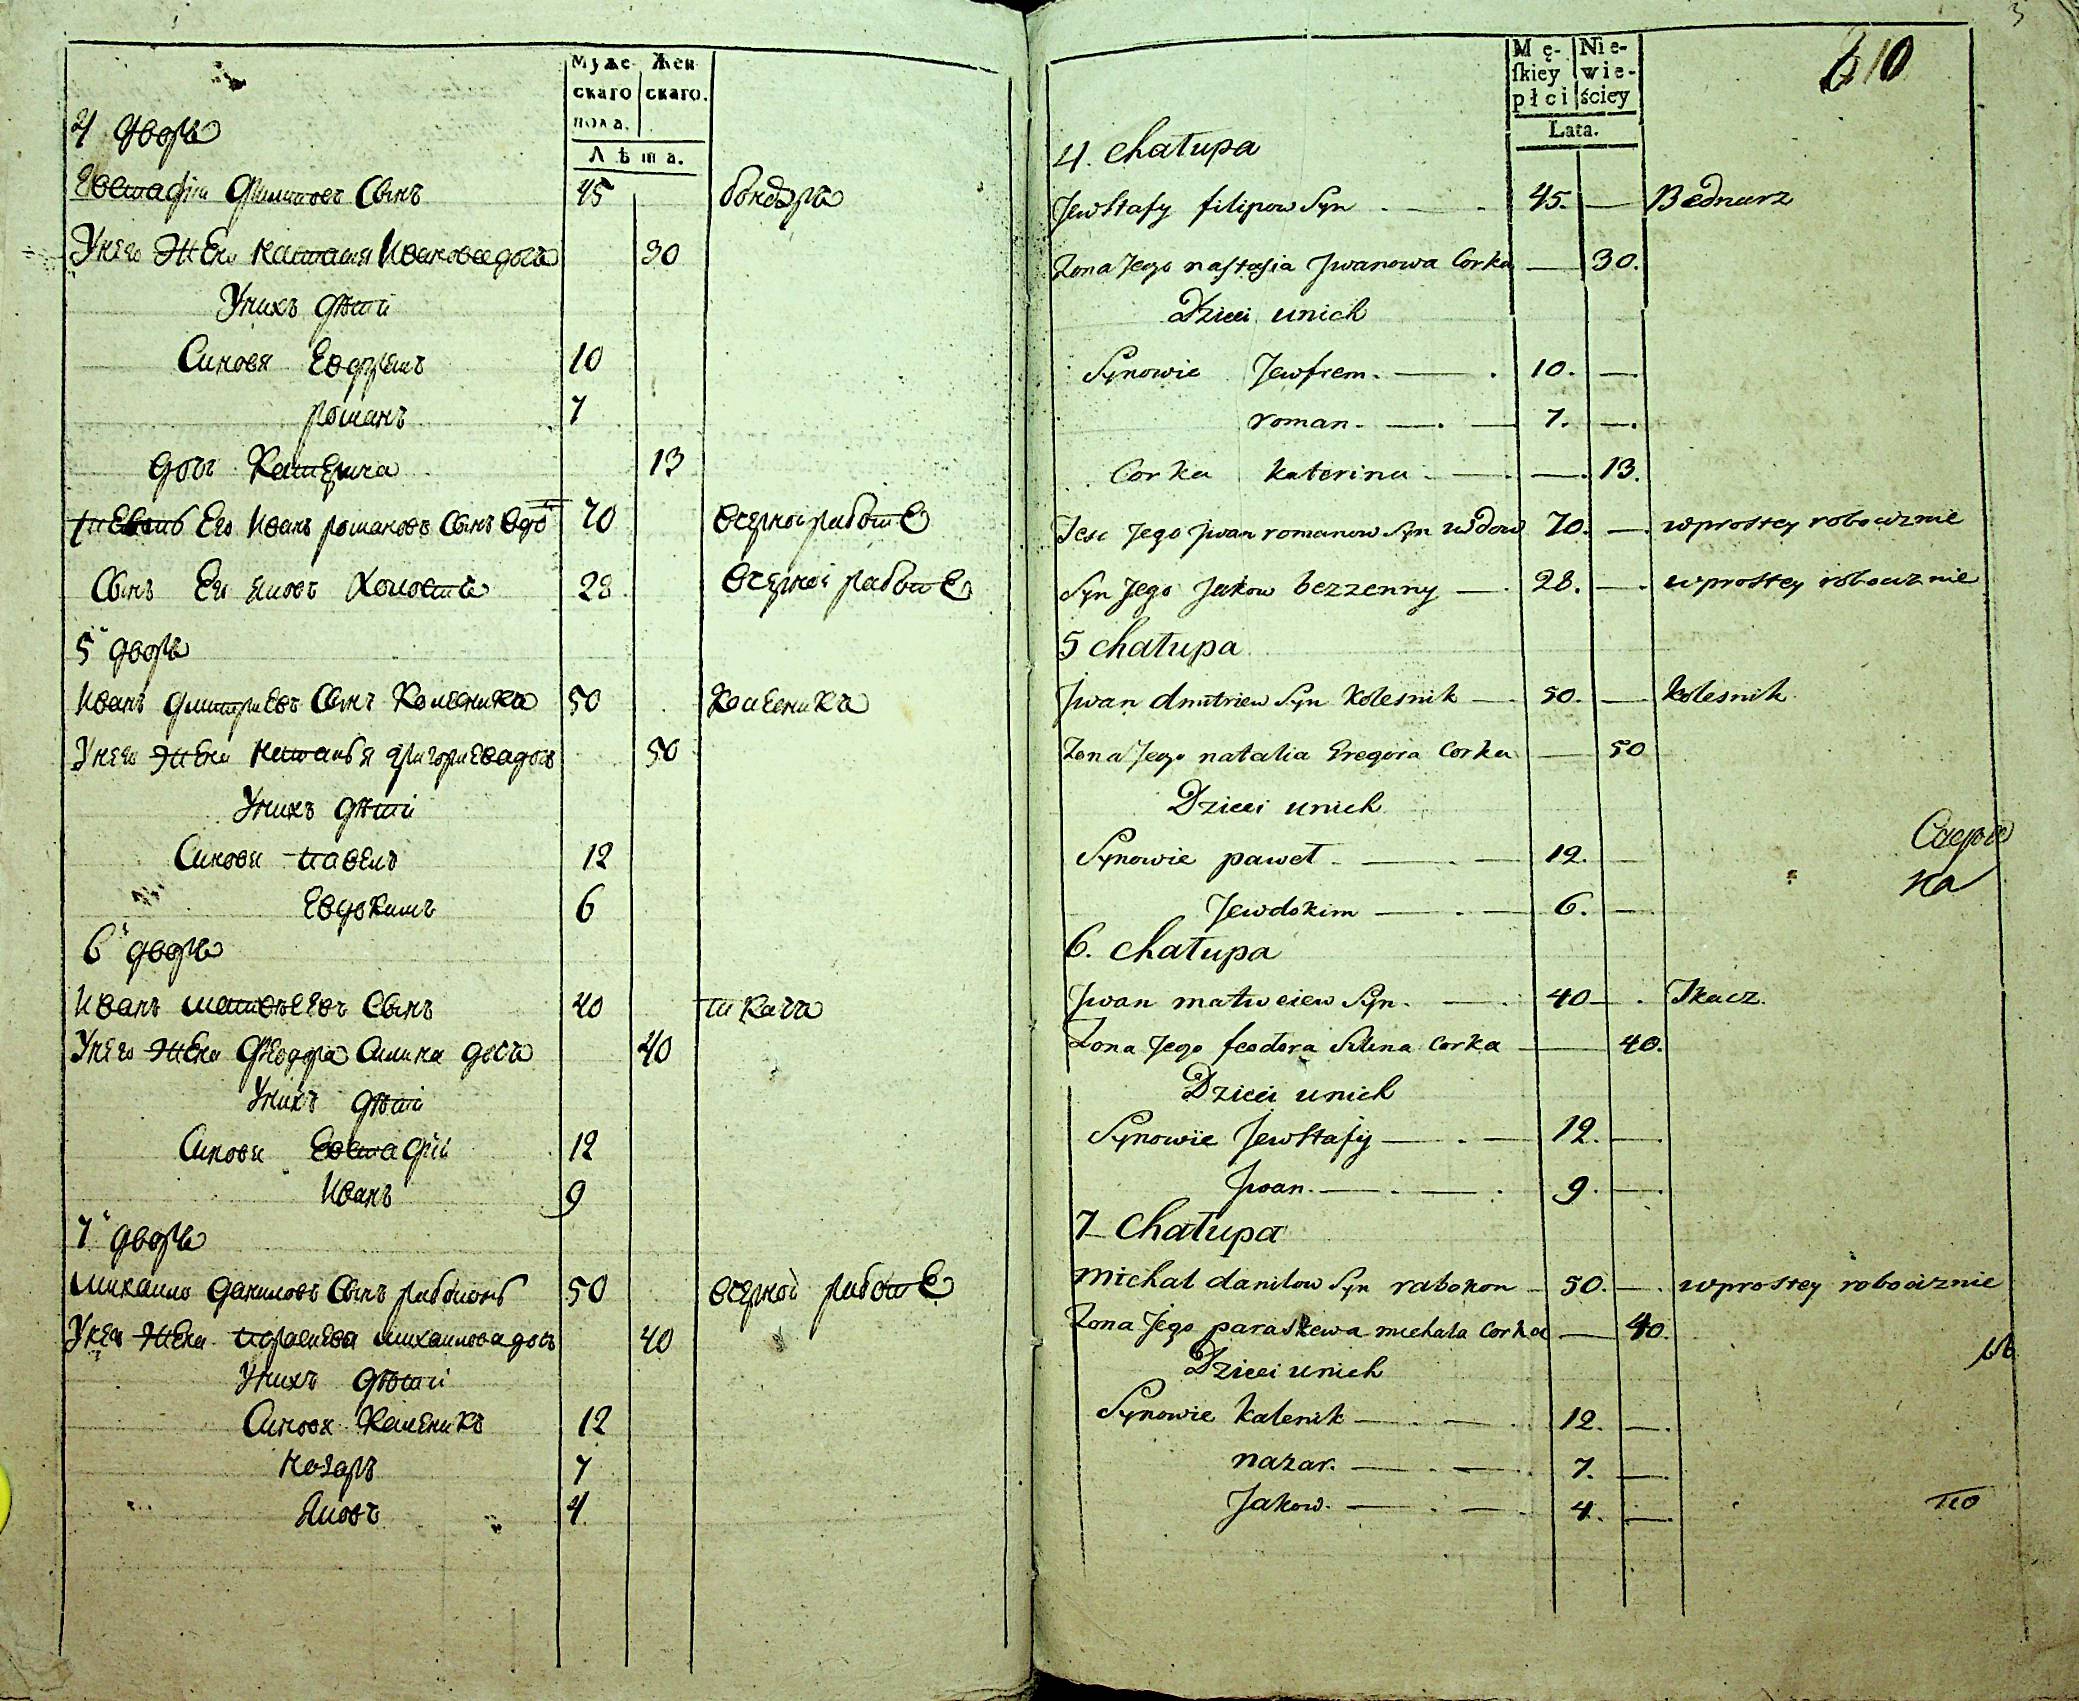 Муже- Жен-
скаго скаго.
пола.
Лѣта.
4 дворъ
Евстафіи Филиповъ Сынъ 45 бондаръ
Унего жена настасия Ивановадочъ 30
Унихъ дѣти
Синовя Евфремъ 10
романъ 7
дочъ Катерина 13
тесть Его Иванъ романовъ Сынъ вдо 70 вчернои работе
Сынъ Его Яковъ Холостъ 28 вчерной работе
5 дворъ
Иванъ дмитриевъ Сынъ Колесникъ 50 Колесникъ
Унего жена наталья григориевадочъ 50
Унихъ дѣти
Синови павелъ 12
Евдокимъ 6
6 дворъ
Иванъ матвѣевъ Сынъ 40 ткачъ
Унего жена Феодора Силина дочъ 40
Унихъ дѣти
Синови Евстафіи 12
Иванъ 9
7 дворъ
михаило даниловъ Сынъ рабоконь 50 вчерной работе
Унего жена параскева михаиловадочъ 40
Унихъ дѣти
Синовя Каленикъ 12
Назаръ 7
Яковъ 4
Mę- Nie-
ſkiey wie-
płci ściey
Lata.
610
4. Chałupa
Jewstafy filipow Syn 45. Bednarz
Zona Jego nastasia Jwanowa Corka 30.
Dzieci unich
Synowie Jewfrem. 10.
roman. 7.
Corka katerina 13.
Tesc Jego Jwan romanow Syn wdow 70. wprostey robociznie
Syn Jego Jakow bezzenny 28. wprostey robociznie
5 Chałupa
Jwan dmitriew Syn Kolesnik 50. kolesnik
Zona Jego natalia Gregora Corka 50
Dzieci unich
Synowie paweł 12.
Jewdokim 6.
на
6. Chałupa
Jwan matweiew Syn. 40 Tkacz.
Zona Jego feodora Silina Corka 40.
Dzieci unich
Synowie Jewstafy 12.
Jwan. 9.
7 Chałupa
Michał daniłow Syn rabokon 50. wprostey robociznie
Zona Jego paraskewa michała Corka 40.
Dzieci unich
Synowie kalenik 12.
nazar. 7.
Jakow. 4.
по